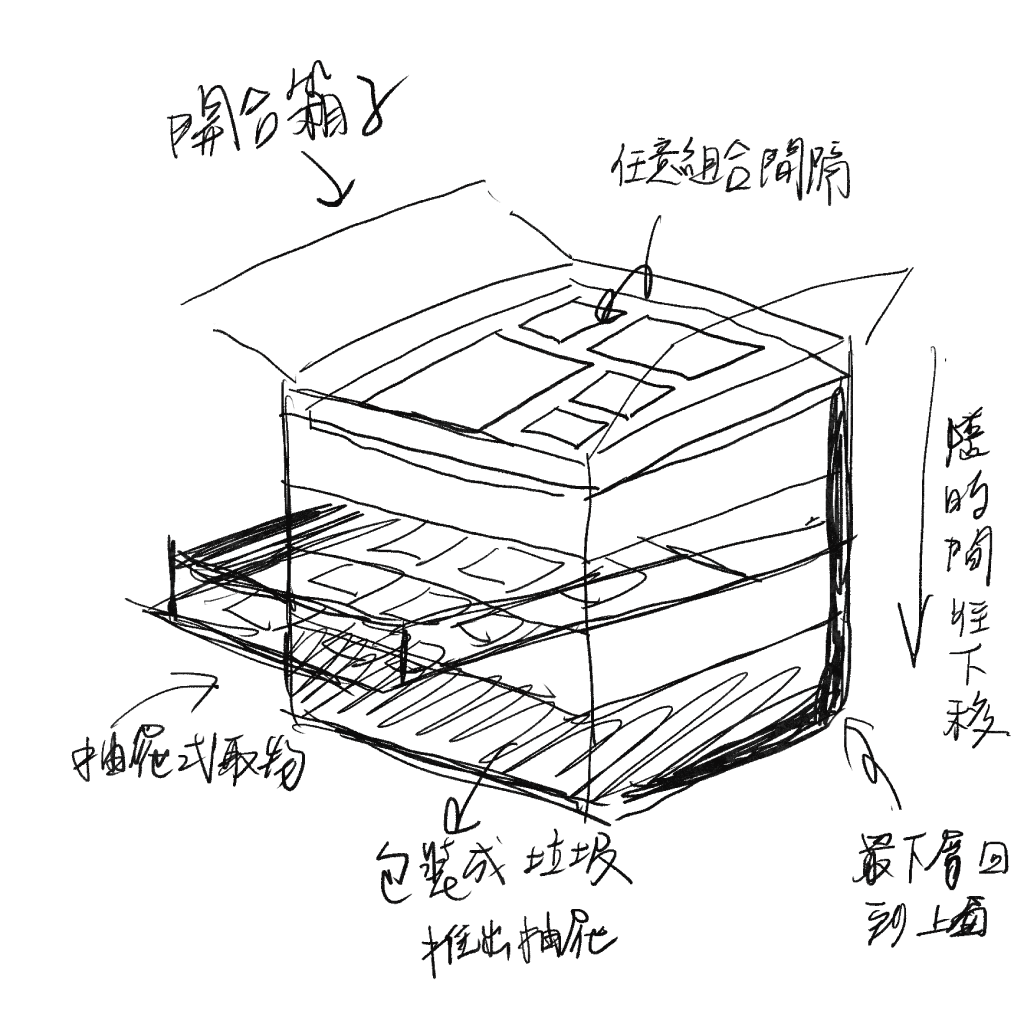 開合箱子
任意組合間隔
隨時間往下移
抽屜式取物
包裝成垃圾
推出抽屜
最下層回
到上面